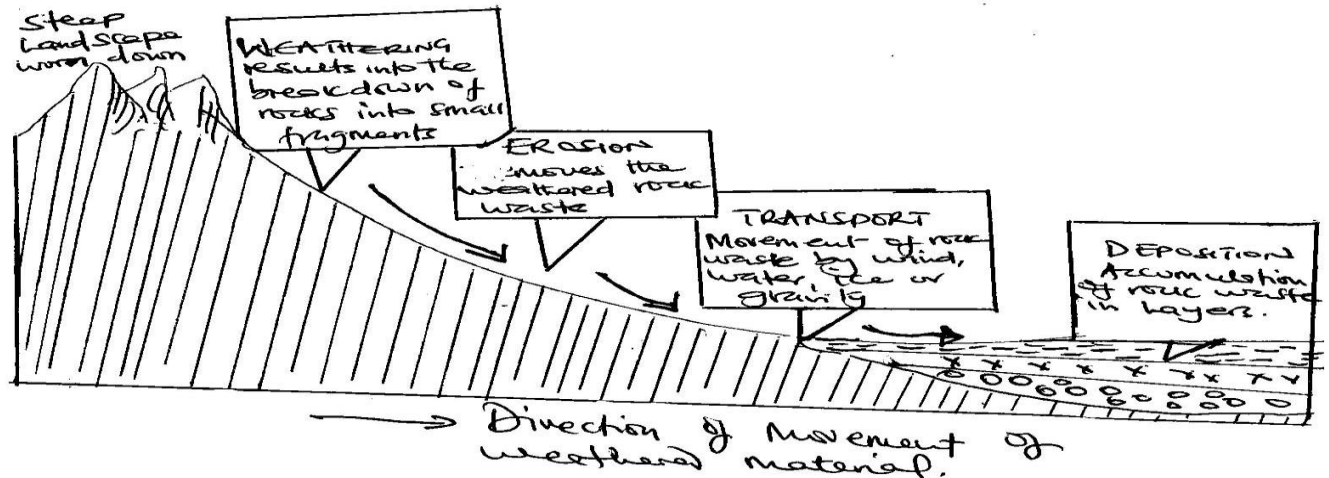 Steep
Landscape
worn down
WEATHERING
results into the
breakdown of
rocks into small
fragments
EROSION
moves the
weathered rock
waste
TRANSPORT
Movement of rock
waste by wind,
water, Ice or
gravity
DEPOSITION
Accumulation
of rock waste
in Layers.
Direction of Movement of
weathered material.